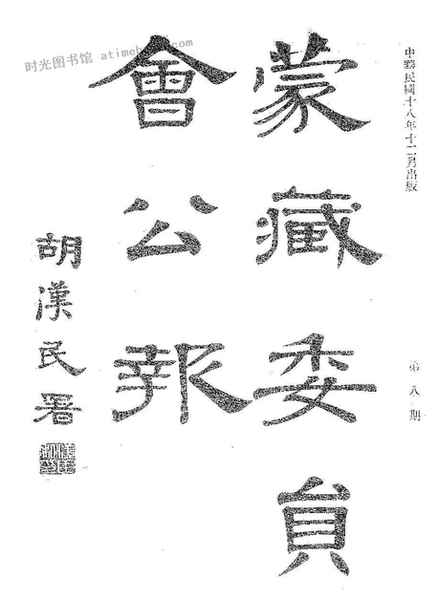 中華民國十八年十二月出版
第八期
蒙藏委員
會公報
胡漢民署
时光图书馆 atimebook.com